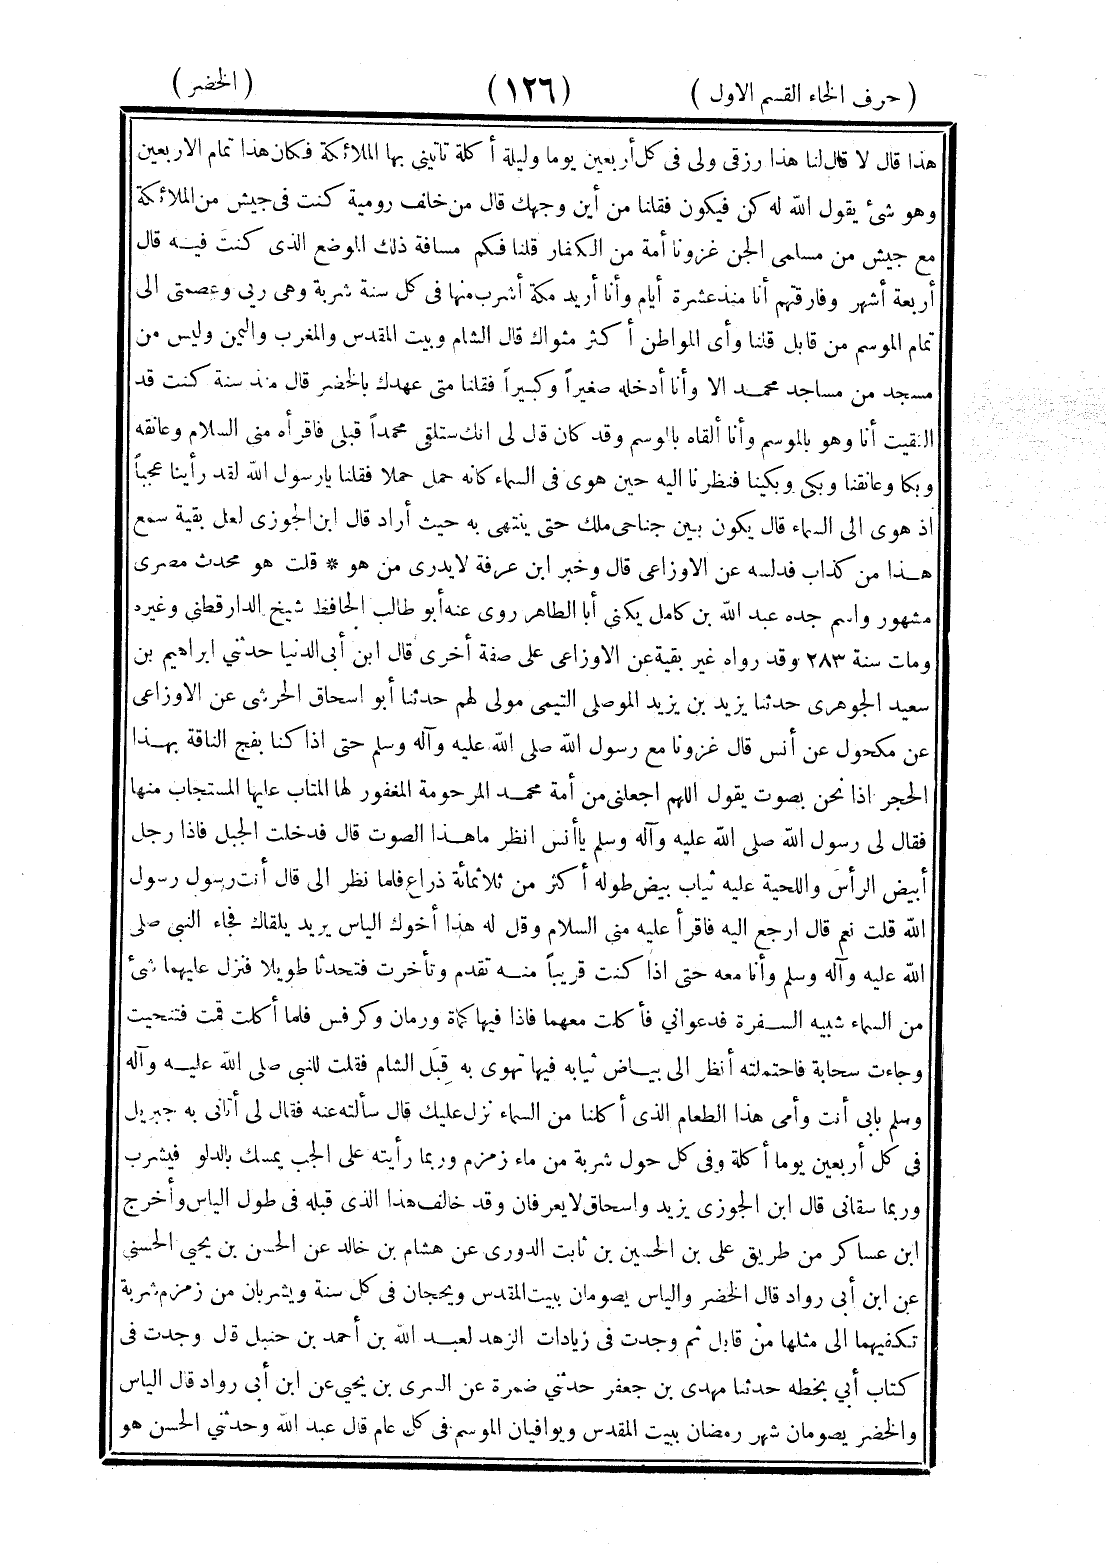 ( حرف الخاء القسم الاول ) (١٢٦) (الخضر)
هذا قال لا قال لنا هذا رزقى ولى فى كل أربعين يوما وليلة أكلة تاتينى بها الملائكة فكان هذا تمام الاربعين
وهو شئ يقول الله له كن فيكون فقلنا من أين وجهك قال من خلف رومية كنت فى جيش من الملائكة
مع جيش من مسلمى الجن غزونا أمة من الكفار قلنا فكم مسافة ذلك الموضع الذى كنت فيه قال
أربعة أشهر وفارقتهم أنا منذ عشرة أيام وأنا أريد مكة أشرب منها فى كل سنة شربة وهى ربى وعصمتى الى
تمام الموسم من قابل قلنا وأى المواطن أكثر مثواك قال الشام وبيت المقدس والمغرب واليمن وليس من
مسجد من مساجد محمد الا وأنا أدخله صغيراً وكبيراً فقلنا متى عهدك بالخضر قال منذ سنة كنت قد
التقيت أنا وهو بالموسم وأنا ألقاه بالموسم وقد كان قال لى انك ستلقى محمداً قبلى فاقرأه منى السلام وعانقه
وبكا وعانقنا وبكى وبكينا فنظرنا اليه حين هوى فى السماء كانه حمل حملا فقلنا يارسول الله لقد رأينا عجباً
اذ هوى الى السماء قال يكون بين جناحى ملك حتى ينتهى به حيث أراد قال ابن الجوزى لعل بقية سمع
هذا من كذاب فدلسه عن الاوزاعى قال وخبر ابن عرفة لايدرى من هو * قلت هو محدث مصرى
مشهور واسم جده عبد الله بن كامل يكنى أبا الطاهر روى عنه أبو طالب الحافظ شيخ الدارقطنى وغيره
ومات سنة ٢٨٣ وقد رواه غير بقية عن الاوزاعى على صفة أخرى قال ابن أبى الدنيا حدثني ابراهيم بن
سعيد الجوهرى حدثنا يزيد بن يزيد الموصلى التيمى مولى لهم حدثنا أبو اسحاق الحرشى عن الاوزاعى
عن مكحول عن أنس قال غزونا مع رسول الله صلى الله عليه وآله وسلم حتى اذا كنا بفج الناقة بهذا
الحجر اذا نحن بصوت يقول اللهم اجعلنى من أمة محمد المرحومة المغفور لها المتاب عليها المستجاب منها
فقال لى رسول الله صلى الله عليه وآله وسلم يا أنس انظر ماهذا الصوت قال فدخلت الجبل فاذا رجل
أبيض الرأس واللحية عليه ثياب بيض طوله أكثر من ثلاثمائة ذراع فلما نظر الى قال أنت رسول رسول
الله قلت نعم قال ارجع اليه فاقرأ عليه منى السلام وقل له هذا أخوك الياس يريد يلقاك فجاء النبى صلى
الله عليه وآله وسلم وأنا معه حتى اذا كنت قريباً منه تقدم وتأخرت فتحدثا طويلا فنزل عليهما شئ
من السماء شبيه السفرة فدعواني فأكلت معهما فاذا فيها كماة ورمان وكرفس فلما أكلت قمت فتنحيت
وجاءت سحابة فاحتملته أنظر الى بياض ثيابه فيها تهوى به قِبَل الشام فقلت للنبى صلى الله عليه وآله
وسلم بابى أنت وأمى هذا الطعام الذى أكلنا من السماء نزل عليك قال سألته عنه فقال لى أتانى به جبريل
فى كل أربعين يوما أكلة وفى كل حول شربة من ماء زمزم وربما رأيته على الجب يمسك بالدلو فيشرب
وربما سقانى قال ابن الجوزى يزيد واسحاق لايعرفان وقد خالف هذا الذى قبله فى طول الياس وأخرج
ابن عساكر من طريق على بن الحسين بن ثابت الدورى عن هشام بن خالد عن الحسن بن يحيى الحسنى
عن ابن أبى رواد قال الخضر والياس يصومان ببيت المقدس ويحجان فى كل سنة ويشربان من زمزم شربة
تكفيهما الى مثلها من قابل ثم وجدت فى زيادات الزهد لعبد الله بن أحمد بن حنبل قال وجدت فى
كتاب أبي بخطه حدثنا مهدى بن جعفر حدثني ضمرة عن السرى بن يحيى عن ابن أبى رواد قال الياس
والخضر يصومان شهر رمضان ببيت المقدس ويوافيان الموسم فى كل عام قال عبد الله وحدثني الحسن هو